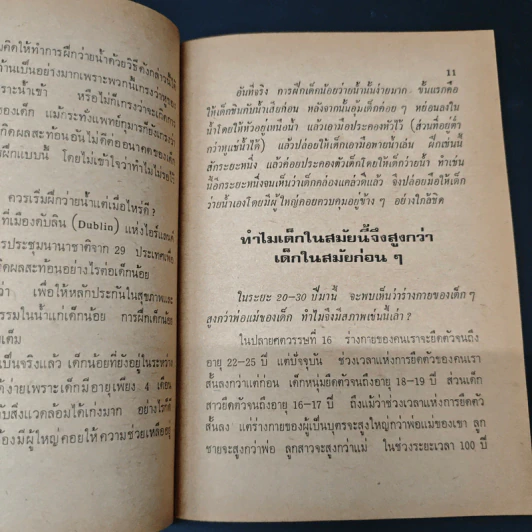 มคิดให้ทำการฝึกว่ายน้ำด้วยวิธีดังกล่าวนี้ให้
ด้านเป็นอย่างมากเพราะพวกนี้เกรงว่าหูของ
หรือไม่ก็เกรงว่าจะเกิดการ
ของเด็ก แม้กระทั่งแพทย์กุมารก็ยังเกรงว่า
กิดผลสะท้อนอันไม่ดีต่ออนาคตของเด็ก
ฝึกแบบนี้ โดยไม่เข้าใจว่าทำไมไม่รอไว้
ควรเริ่มฝึกว่ายน้ำแต่เมื่อไหร่ดี ?
ที่เมืองดับลิน (Dublin) แห่งไอร์แลนด์
การประชุมนานาชาติจาก 29 ประเทศเพื่อ
ดผลสะท้อนอย่างไรต่อเด็กน้อย
ว่า เพื่อให้หลักประกันในสุขภาพและ
รรมในน้ำแก่เด็กน้อย การฝึกเด็กน้อย
เต็ม
เป็นจริงแล้ว เด็กน้อยที่ยังอยู่ในระหว่าง
ด้ง่ายเพราะเด็กมีอายุเพียง 4 เดือน
ับสิ่งแวดล้อมได้เก่งมาก อย่างไรก็ดี
้องมีผู้ใหญ่คอยให้ความช่วยเหลืออยู่
11
อันที่จริง การฝึกเด็กน้อยว่ายน้ำนั้นง่ายมาก ขั้นแรกคือ
ให้เด็กชินกับน้ำเสียก่อน หลังจากนั้นอุ้มเด็กค่อย ๆ หย่อนลงใน
น้ำโดยให้หัวอยู่เหนือน้ำ แล้วเอามือประคองหัวไว้ (ส่วนที่อยู่ต่ำ
กว่าหูแช่น้ำได้) แล้วปล่อยให้เด็กเอามือพายน้ำเล่น ฝึกเช่นนี้
สักระยะหนึ่ง แล้วค่อยประคองตัวเด็กโดยให้เด็กว่ายน้ำ ทำเช่น
นี้อีกระยะหนึ่งจนเห็นว่าเด็กคล่องแคล่วดีแล้ว จึงปล่อยมือให้เด็ก
ว่ายน้ำเองโดยมีผู้ใหญ่คอยควบคุมอยู่ข้าง ๆ อย่างใกล้ชิด
ทำไมเด็กในสมัยนี้จึงสูงกว่า
เด็กในสมัยก่อน ๆ
ในระยะ 20–30 ปีมานี้ จะพบเห็นว่าร่างกายของเด็ก ๆ
สูงกว่าพ่อแม่ของเด็ก ทำไมจึงมีสภาพเช่นนี้เล่า ?
ในปลายศตวรรษที่ 16 ร่างกายของคนเราจะยืดตัวจนถึง
อายุ 22–25 ปี แต่ปัจจุบัน ช่วงเวลาแห่งการยืดตัวของคนเรา
สั้นลงกว่าแต่ก่อน เด็กหนุ่มยืดตัวจนถึงอายุ 18–19 ปี ส่วนเด็ก
สาวยืดตัวจนถึงอายุ 16–17 ปี ถึงแม้ว่าช่วงเวลาแห่งการยืดตัว
สั้นลง แต่ร่างกายของผู้เป็นบุตรจะสูงใหญ่กว่าพ่อแม่ของเขา ลูก
ชายจะสูงกว่าพ่อ ลูกสาวจะสูงกว่าแม่ ในช่วงระยะเวลา 100 ปี